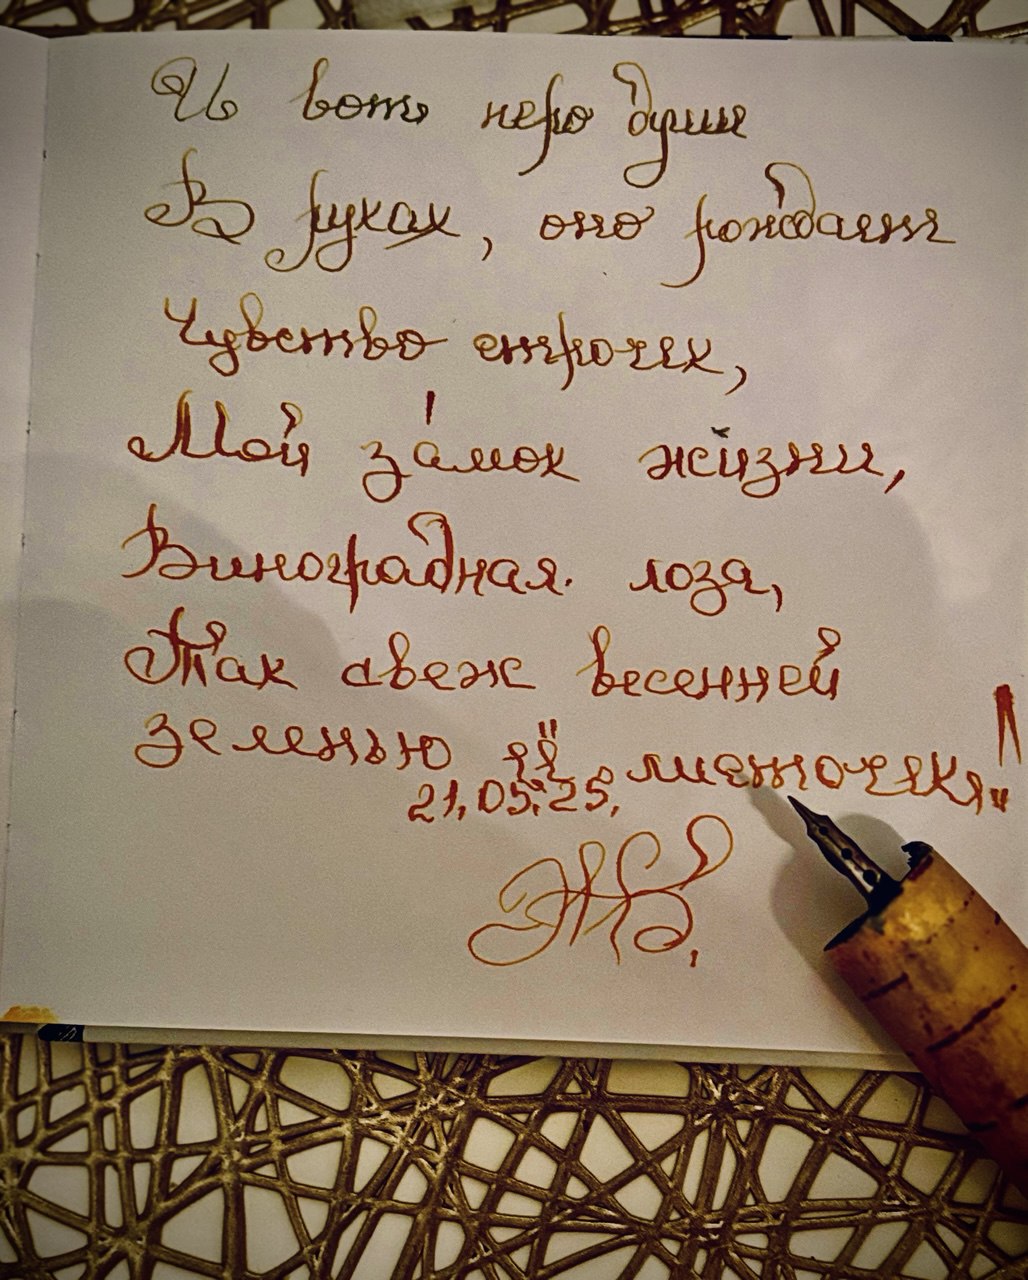 И вот перо души
В руках, оно рождает
Чувство строчек,
Мой за́мок жизни,
Виноградная лоза,
Так свеж весенней
зеленью её "листочек"!
21.05.25.
ЖВ.